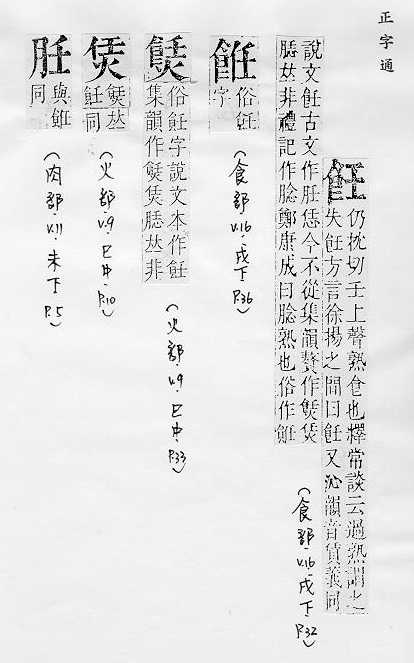 正字通
飪
仍枕切壬上聲熟食也釋常談云過熟謂之
失飪方言徐揚之間曰飪又沁韻音賃義同
說文飪古文作䏕恁今不從集韻贅作
腍𠀤非禮記作腍鄭康成曰腍熟也俗作餁
(食部.V.16.戌下.P.32)
餁
俗飪
字
(食部.V.16.戌下.P.36)
俗飪字說文本作飪
集韻作腍𠀤非
(火部.V.9.巳中.P.33)
𠀤
飪同
(火部.V.9.巳中.P.10)
䏕
與餁
同
(肉部.V.11.未下.P.5)